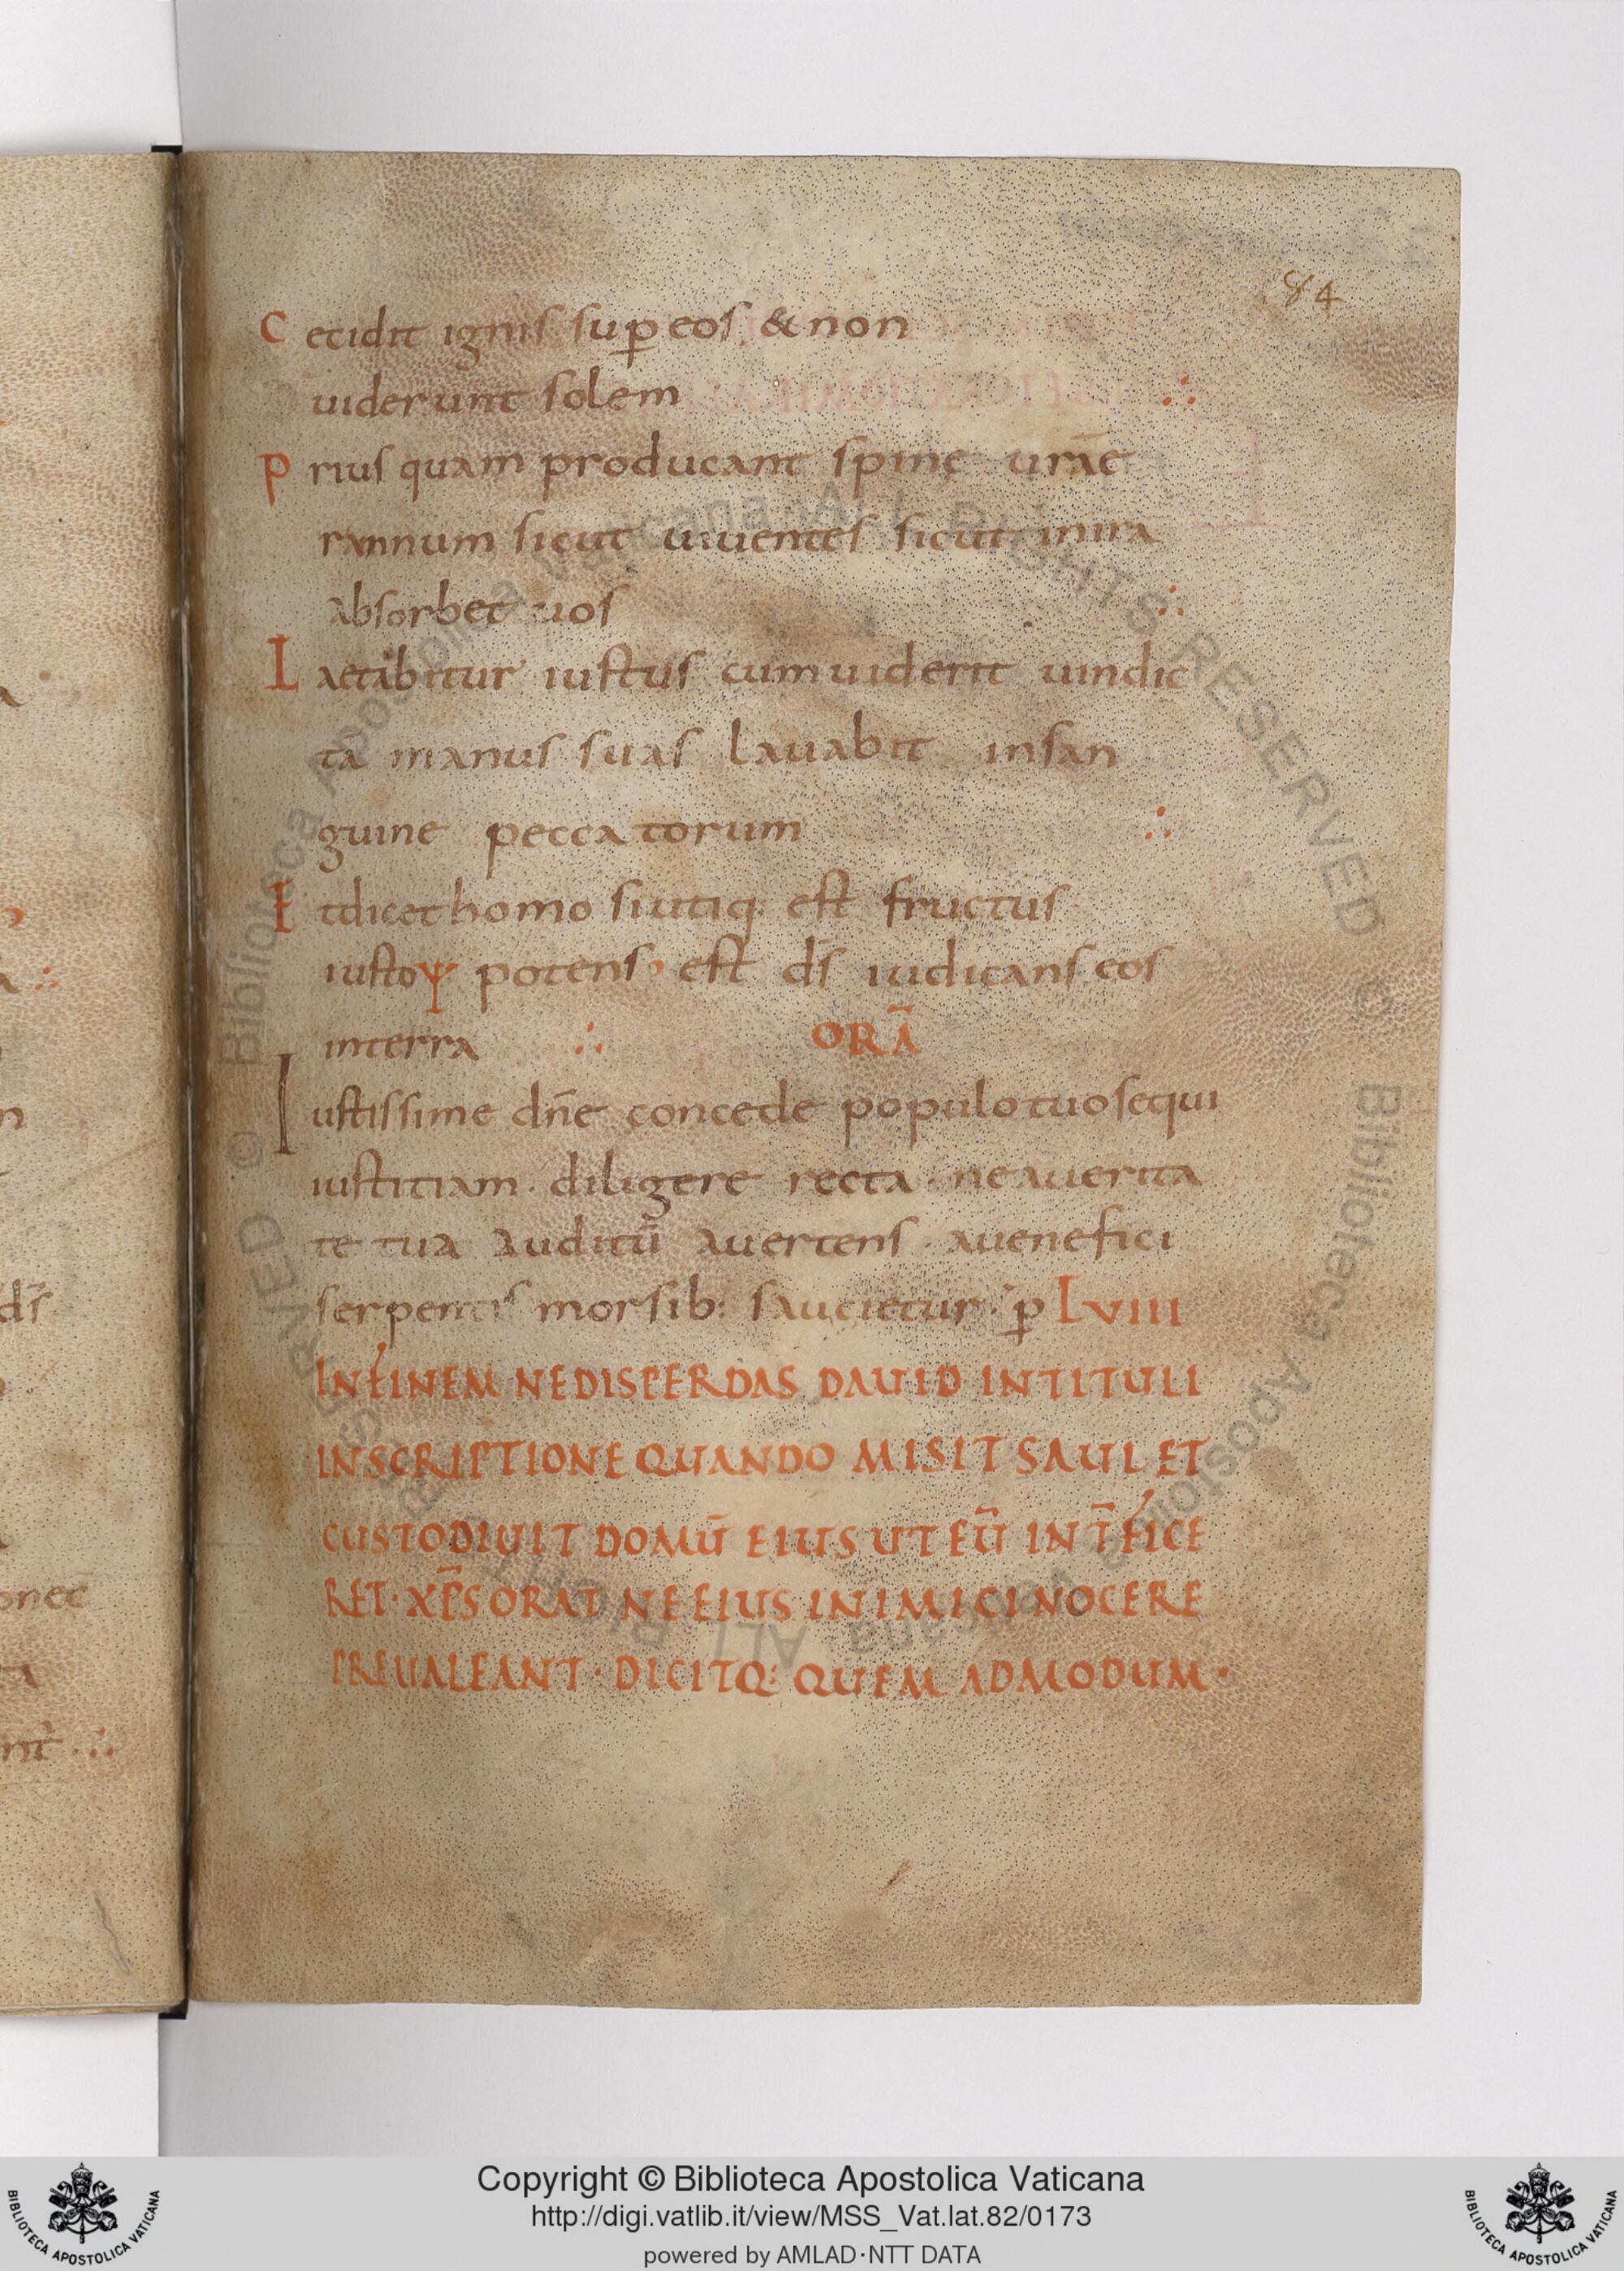 84
Cecidit ignis sup̱ eos & non
uiderunt solem ∴
Prius quam producant spinę urāe
ramnum sicut uiuentes sicut inira
absorbet uos ∴
Laetabitur iustus cum uiderit uindic
tā manus suas lauabit in san
guine peccatorum ∴
Et dicet homo si utiq; est fructus
iusto potens est ds̄ iudicans eos
interra ∴ ORĀ
Iustissime dn̄e concede populo tuo sequi
iustitiam · diligere recta · ne auerita
te tua auditū auertens · auenefici
serpentis morsib: saucietur · p̱ LVIII
IN FINEM NE DISPERDAS DAUID IN TITULI
INSCRIPTIONE QUANDO MISIT SAUL ET
CUSTODIUIT DOMŪ EIUS UT EŪ INT̄FICE
RET · XP̄S ORAT NE EIUS INIMICI NOCERE
PREUALEANT · DICITQ: QUEM ADMODUM ·
ds̄
onec
Copyright © Biblioteca Apostolica Vaticana
http://digi.vatlib.it/view/MSS_Vat.lat.82/0173
powered by AMLAD·NTT DATA
BIBLIOTECA APOSTOLICA VATICANA
BIBLIOTECA APOSTOLICA VATICANA